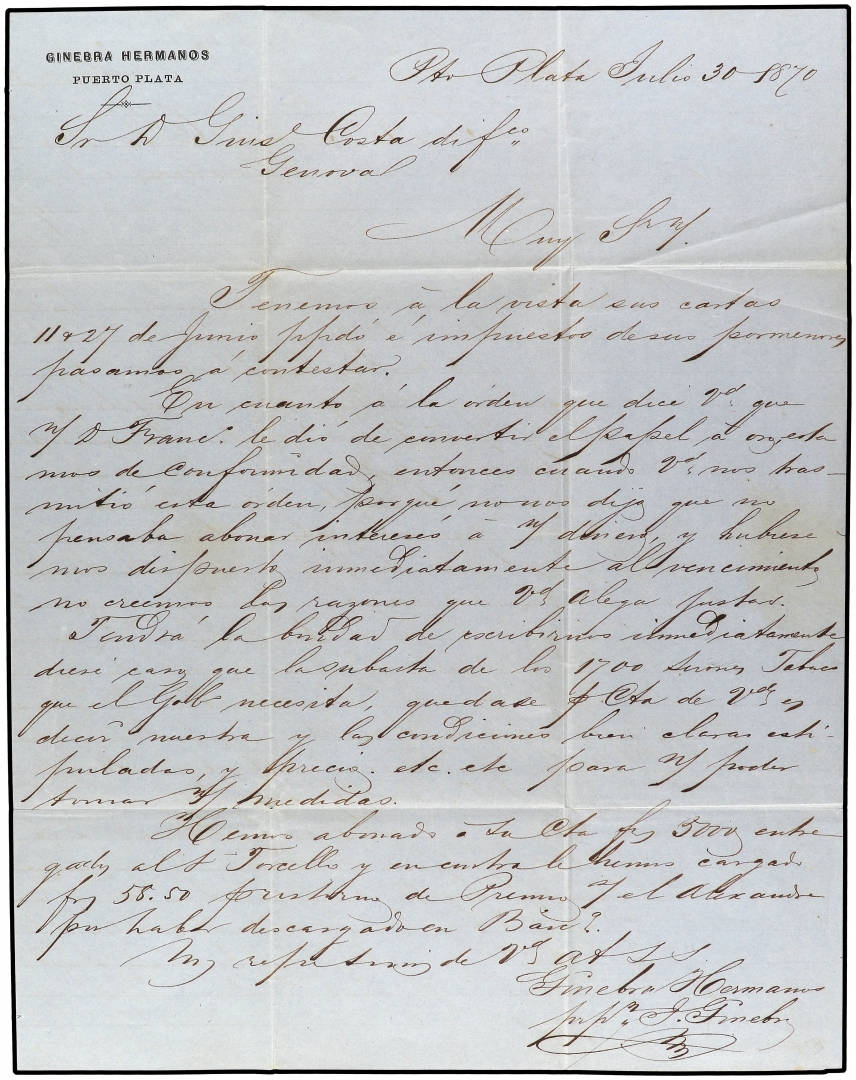 GINEBRA HERMANOS
PUERTO PLATA
Pto Plata Julio 30 1870
Sr D Guis.e Costa di f.co
Genova
Muy Sr n/.
Tenemos á la vista sus cartas
11 & 27 de Junio ppdó é impuestos de sus pormenores
pasamos á contestar.
En cuanto á la órden que dice Vd. que
n/ D Franc.o le dió de convertir el papel á oro, esta
mos de conformidad, entonces cuando Vd. nos tras-
mitió esta órden, porqué no nos dijo que no
pensaba abonar interesés á n/ dinero, y hubiese
mos dispuesto inmediatamente al vencimiento,
no creemos las razones que Vd. alega justas.
Tendrá la bondad de escribirnos inmediatamente
diese caso que la subasta de los 1700 serones Tabaco
que el Gob.o necesita, quedase p Cta de Vds es
decir nuestra y las condiciones bien claras esti-
puladas, y precio. etc. etc para n/ poder
tomar n/ medidas.
Hemos abonado á su Cta frs 5000 entre
gados al Torcello y en contra le hemos cargado
frs 58.50 de Premio s/ el Alexandre
por haber descargado en
de Vd at S S.
Ginebra Hermanos
J. Ginebra